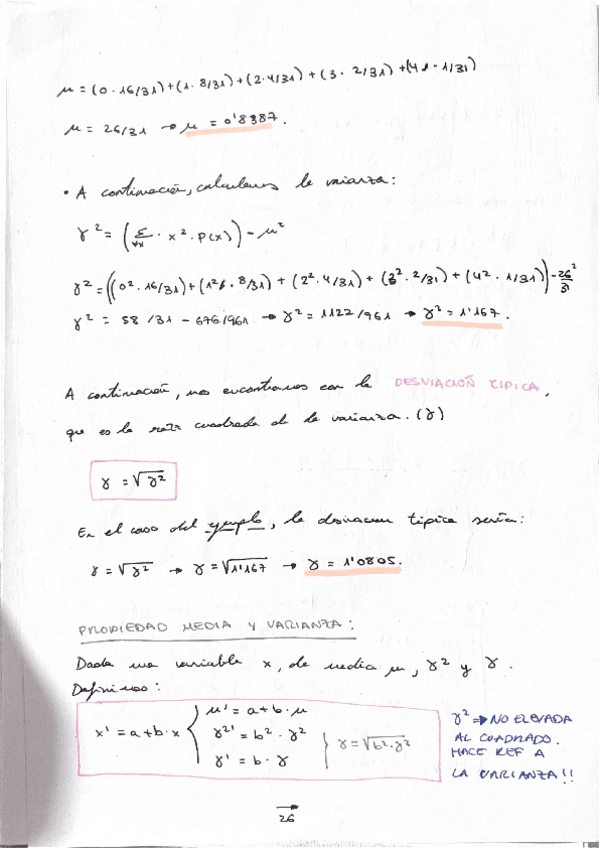 μ = (0 · 16/31) + (1 · 8/31) + (2 · 4/31) + (3 · 2/31) + (4 · 1/31)
μ = 26/31 → μ = 0'8387.
· A continuación, calculamos la varianza:
γ² = (Σ∀x · x² · P(x)) - μ²
γ² = ((0² · 16/31) + (1² · 8/31) + (2² · 4/31) + (3² · 2/31) + (4² · 1/31)) - 26²/31
γ² = 58/31 - 676/961 → γ² = 1122/961 → γ² = 1'167.
A continuación, nos encontramos con la DESVIACIÓN TIPICA,
que es la raíz cuadrada de la varianza. (γ)
γ = √γ²
En el caso del ejemplo, la desviacion tipica sería:
γ = √γ² → γ = √1'167 → γ = 1'0805.
PROPIEDAD MEDIA Y VARIANZA:
Dada una variable x, de media μ, γ² y γ.
Definimos:
x' = a + b · x { μ' = a + b · μ
γ²' = b² · γ²
γ' = b · γ } γ = √b² · γ²
γ² → NO ELEVADA
AL CUADRADO.
HACE REF A
LA VARIANZA!!
26